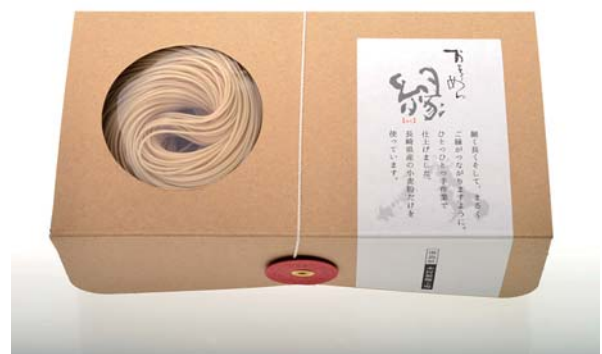 おそうめん
縁
細く長くそして、まるく
ご縁がつながりますように。
ひとつひとつ手作業で
仕上げました。
長崎県産の小麦粉だけを
使っています。